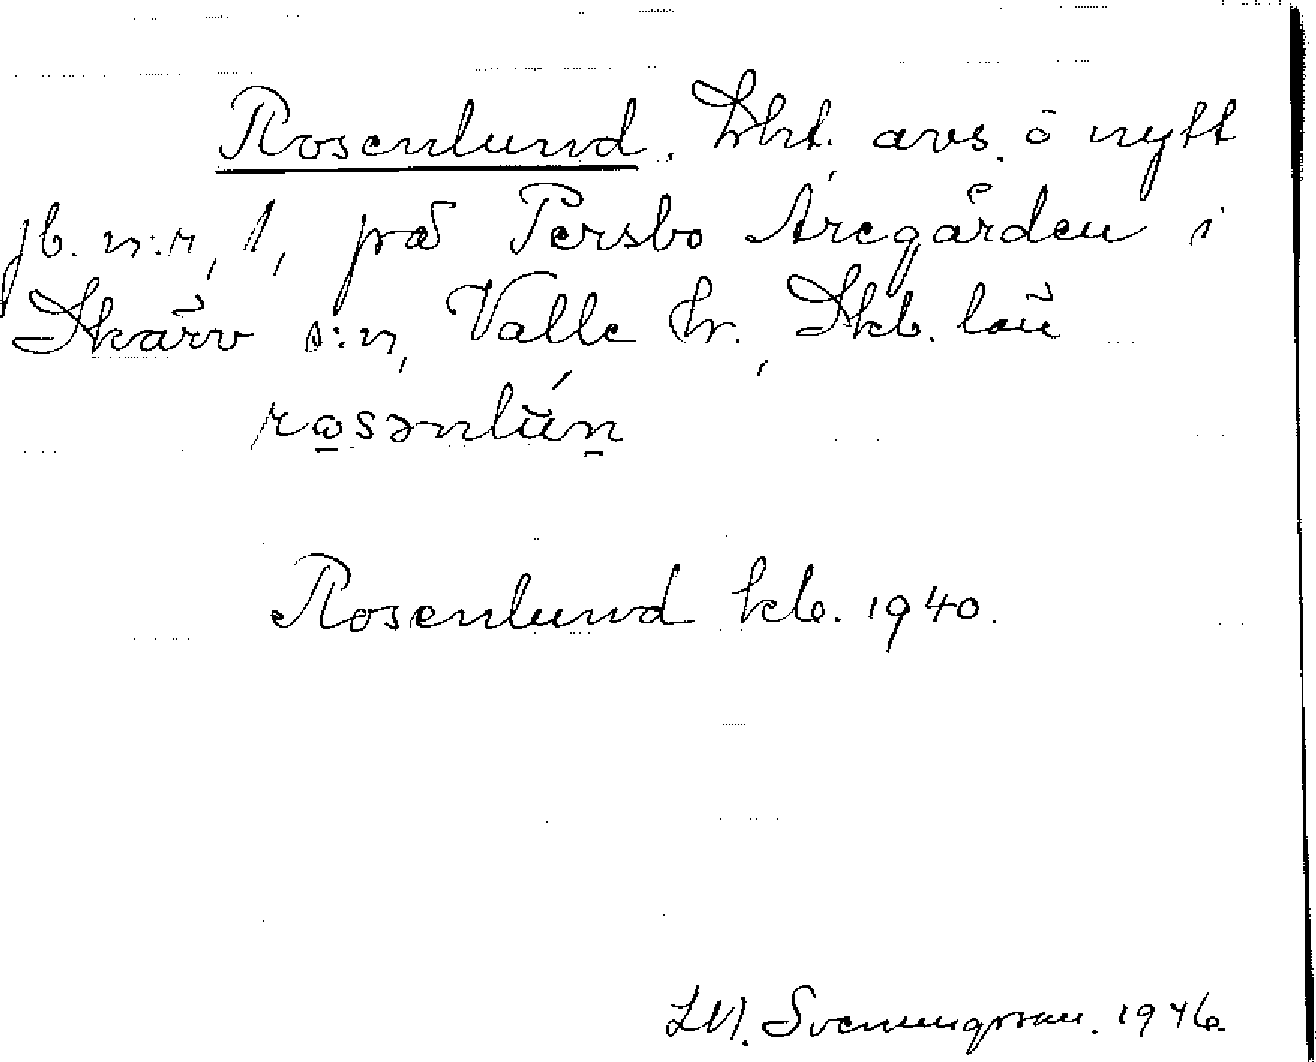 Rosenlund. Lht. avs. o nytt
jb. n:r, 1, på Persbo Aregården i
Skärv s:n, Valle hr., Skb. län
rosənlún
Rosenlund kb. 1940.
Svenungsson. 1946